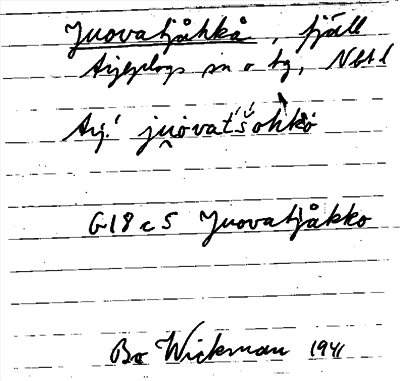 Juovatjåhkå, fjäll
Arjeplogs sn o tg, Nbt l
Arj. juovat́šohkò
G18 c 5 Juovatjåkko
Bo Wickman 1941